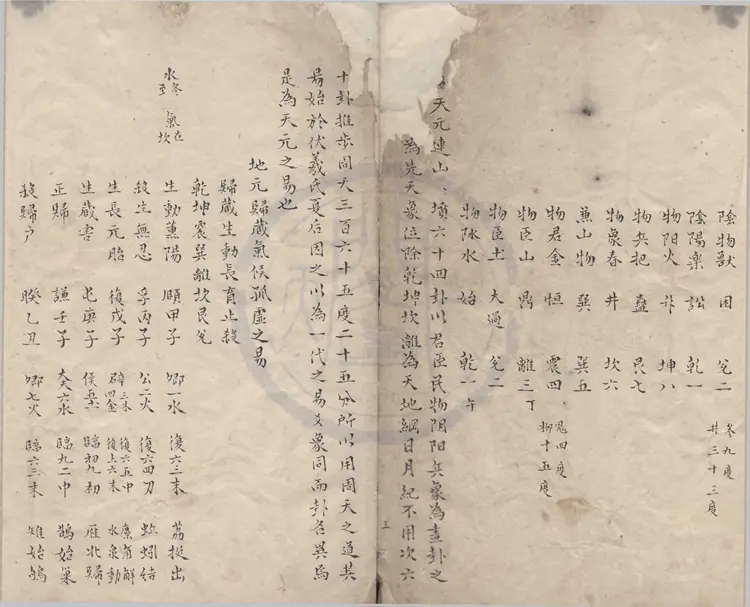 陰物獸 困 兌二 參九度
井三十三度
陰陽樂 訟 乾一
物陽火 升 坤八
物兵把 蠱 艮七
物象春 井 坎六
兼山物 巽 巽五
物君金 恒 震四 鬼四度
柳十五度
物臣山 鼎 離三 丁
物臣土 大過 兌二
物陰水 姤 乾一 午
天元連山 墳六十四卦以君臣民物阴阳兵象為畫卦之
為先天象位除乾坤坎離為天地綱日月紀不用次六
十卦推步周天三百六十五度二十五分所以用周天之道其
易始於伏羲氏夏后因之以為一代之易爻象同而卦名異焉
是為天元之易也
地元歸藏氣候孤虛之易
歸藏生動長育止殺
乾坤震巽離坎艮兌
水冬至 氣在坎
生動薫陽 頤甲子 卿一水 復六三末 荔挺出
殺生無忍 孚丙子 公二火 復六四初 蚯蚓结
生長元胎 復戊子 辟三木四金 復六五中 復上六末 麋角解 水泉動
生藏害 屯庚子 侯五土 臨初九初 雁北歸
正歸 謙壬子 大夫六水 臨九二中 鵲始巢
殺歸户 睽乙丑 卿七火 臨六三末 雉始鴝